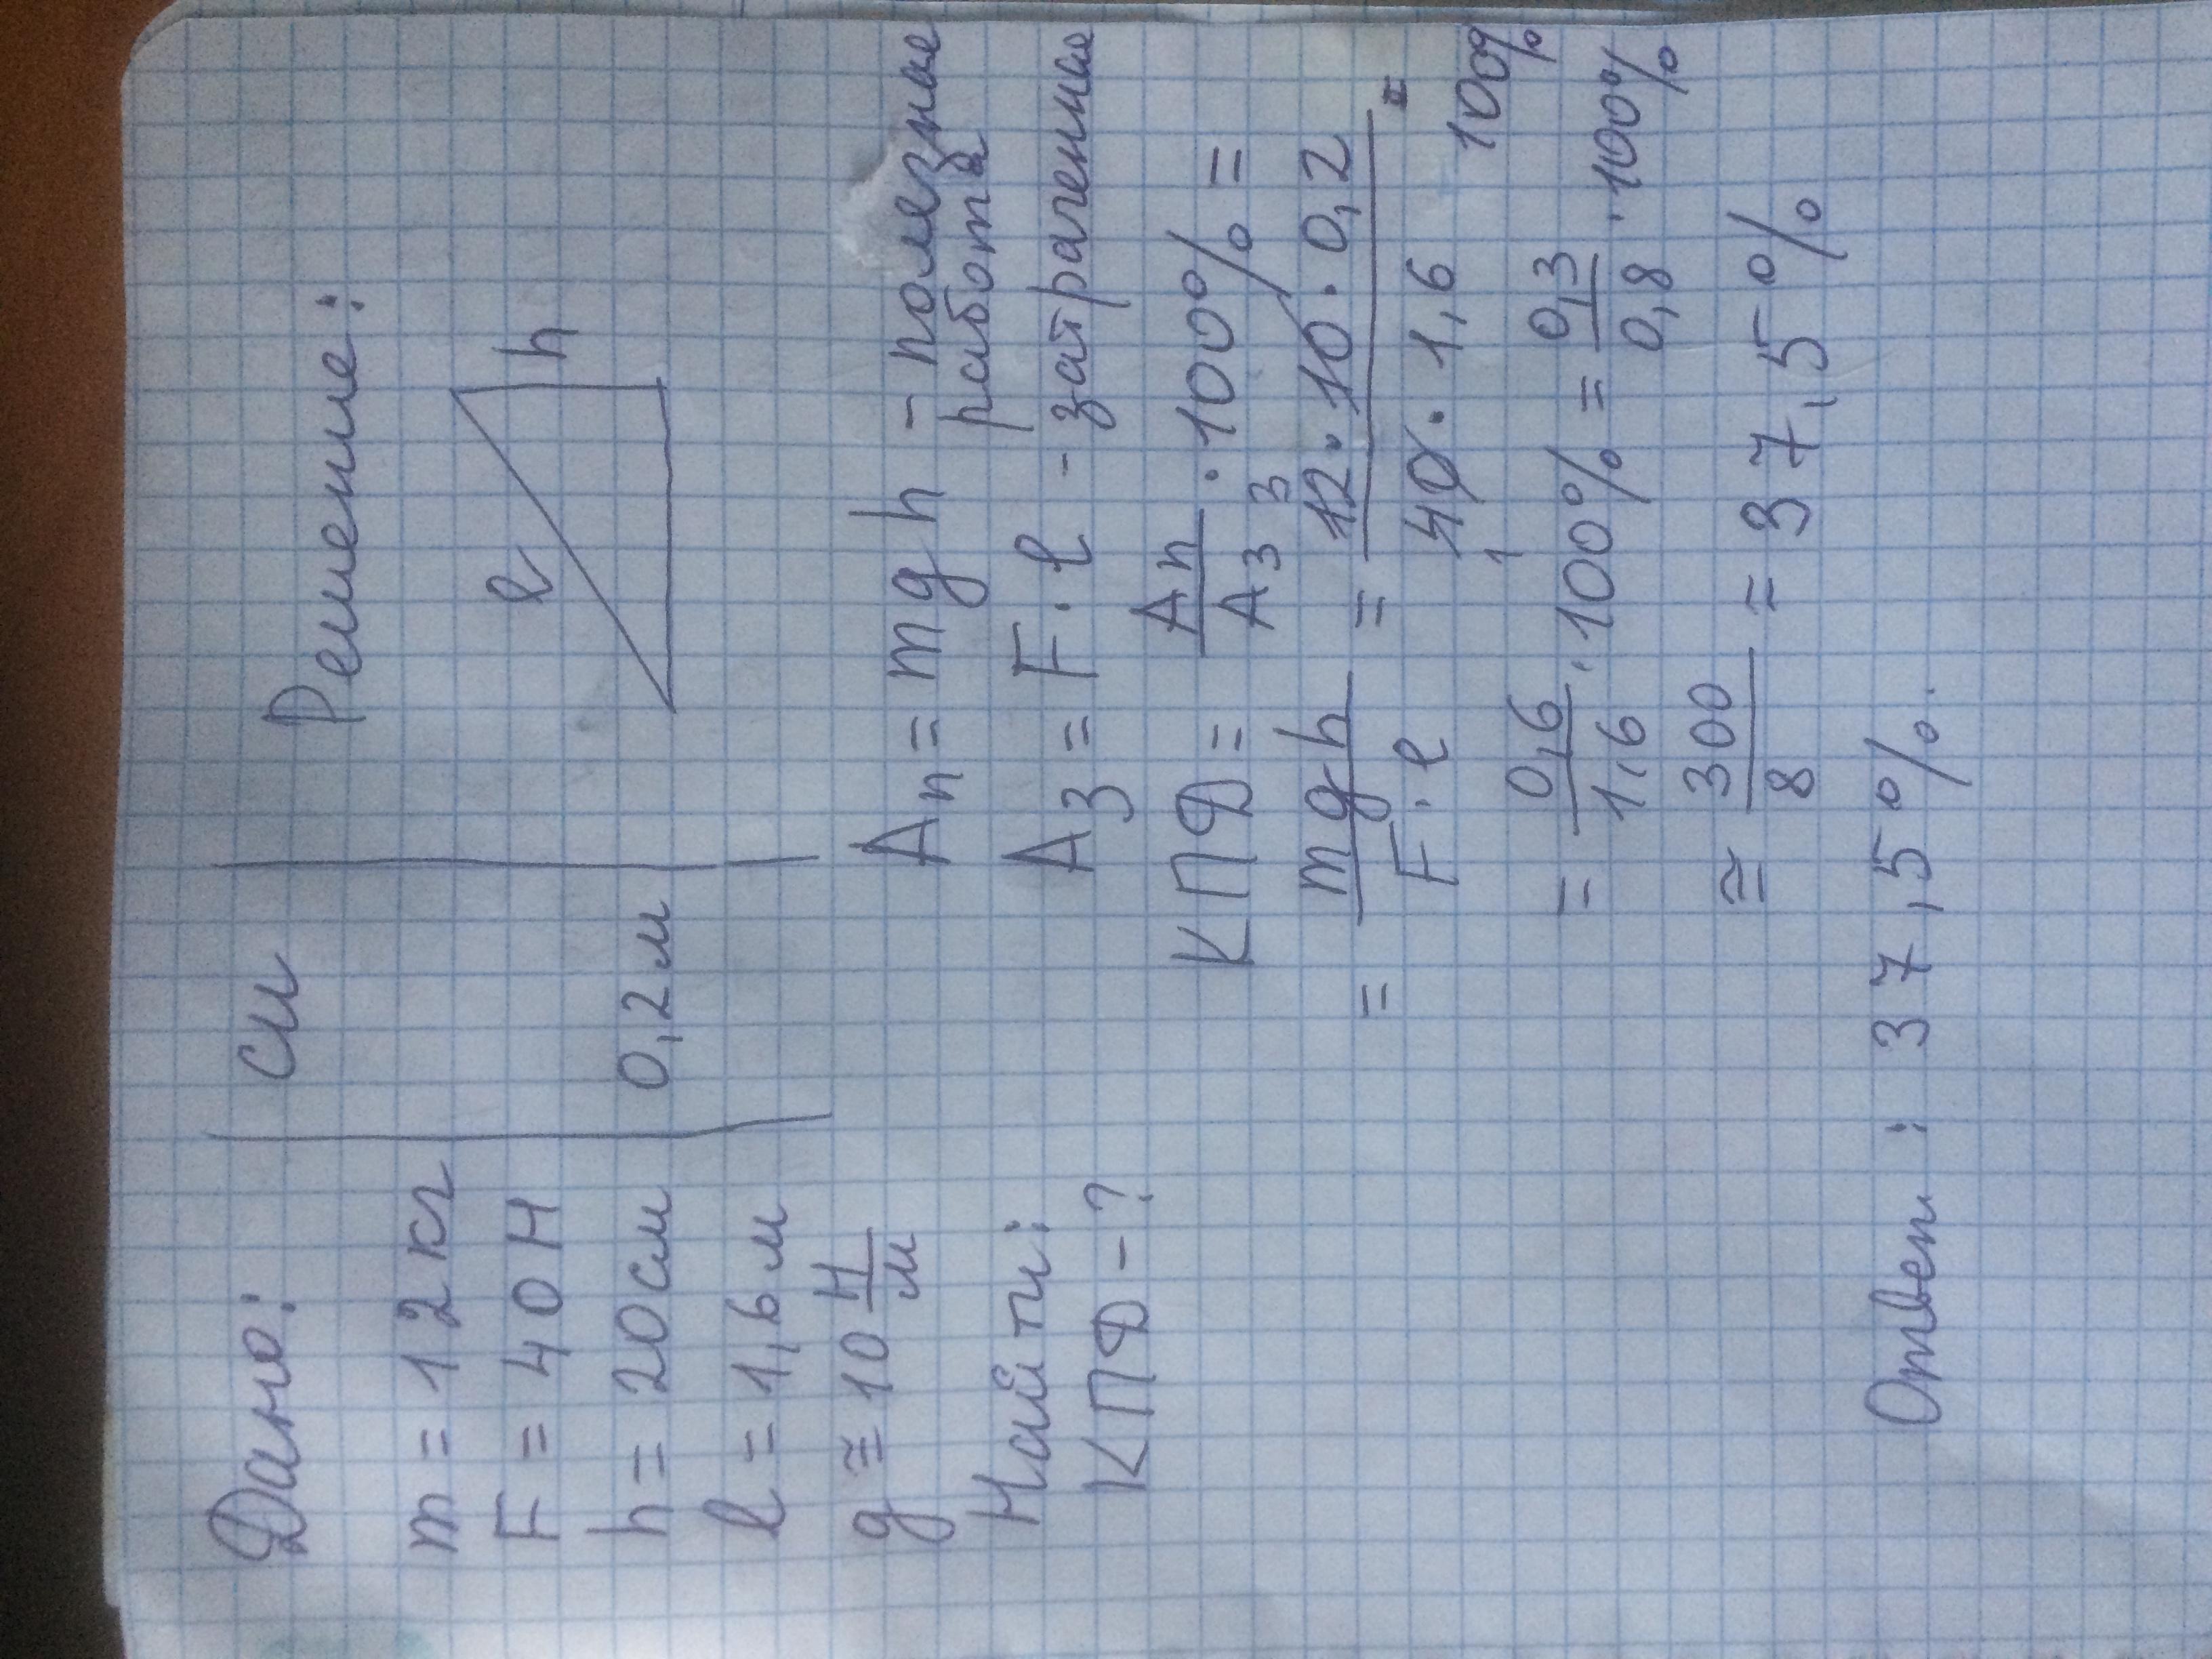 Дано:
m = 12 кг
F = 40 Н
h = 20 см
l = 1,6 м
g ≅ 10 Н/м
Найти:
КПД - ?
СИ
0,2 м
Решение:
l
h
Aп = mgh - полезная
работа
Aз = F · l - затраченная
КПД = Aп/Aз · 100% =
= mgh/F·l = 12 · 10 · 0,2/40 · 1,6 =
3
1
100%
= 0,6/1,6 · 100% = 0,3/0,8 · 100%
≅ 300/8 = 37,5%
Ответ: 37,5%.